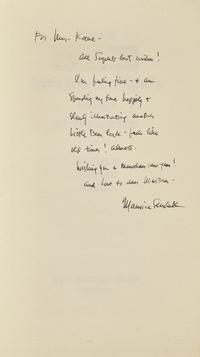 For Mrs. Keene –
all Superb best wishes!
I'm feeling fine – & am
spending my time happily &
slowly illustrating another
Little Bear book – feels like
old times! almost.
Wishing you a marvelous new year!
and love to dear
Maurice Sendak